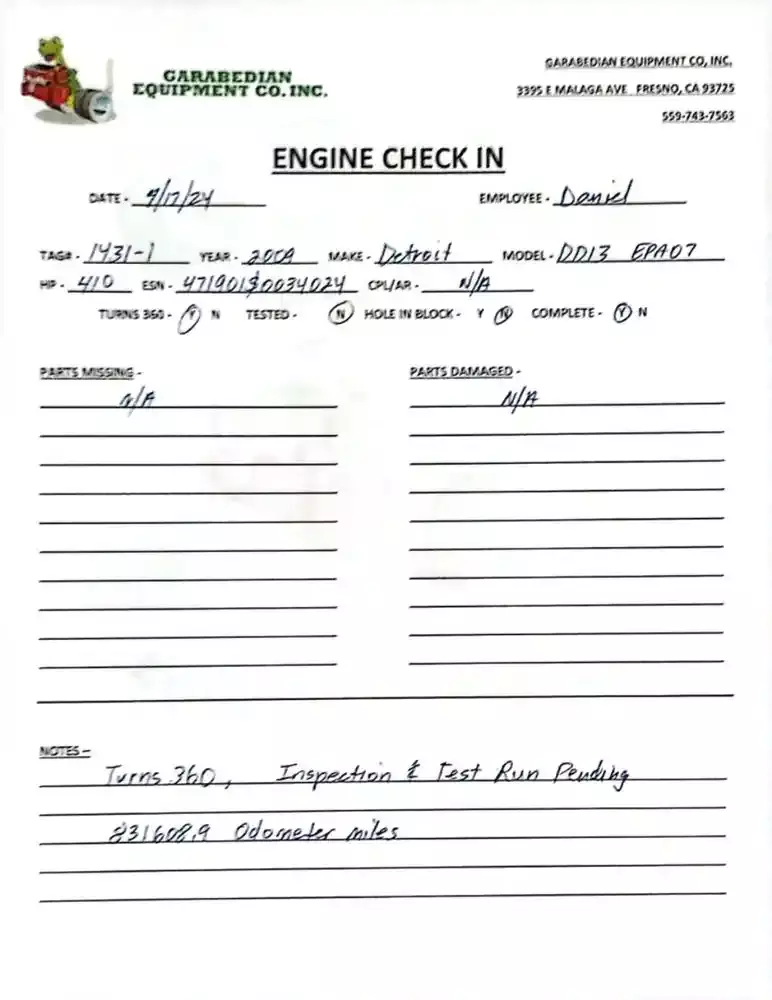 GARABEDIAN
EQUIPMENT CO. INC.
GARABEDIAN EQUIPMENT CO, INC.
3395 E MALAGA AVE FRESNO, CA 93725
559-743-7563
ENGINE CHECK IN
DATE - 9/17/24 EMPLOYEE - Daniel
TAG# - 1431-1 YEAR - 2009 MAKE - Detroit MODEL - DD13 EPA07
HP - 410 ESN - 471901S0034024 CPL/AR - N/A
TURNS 360 - Y N TESTED - N HOLE IN BLOCK - Y N COMPLETE - Y N
PARTS MISSING - PARTS DAMAGED -
N/A N/A
NOTES –
Turns 360, Inspection & Test Run Pending
831608.9 Odometer miles